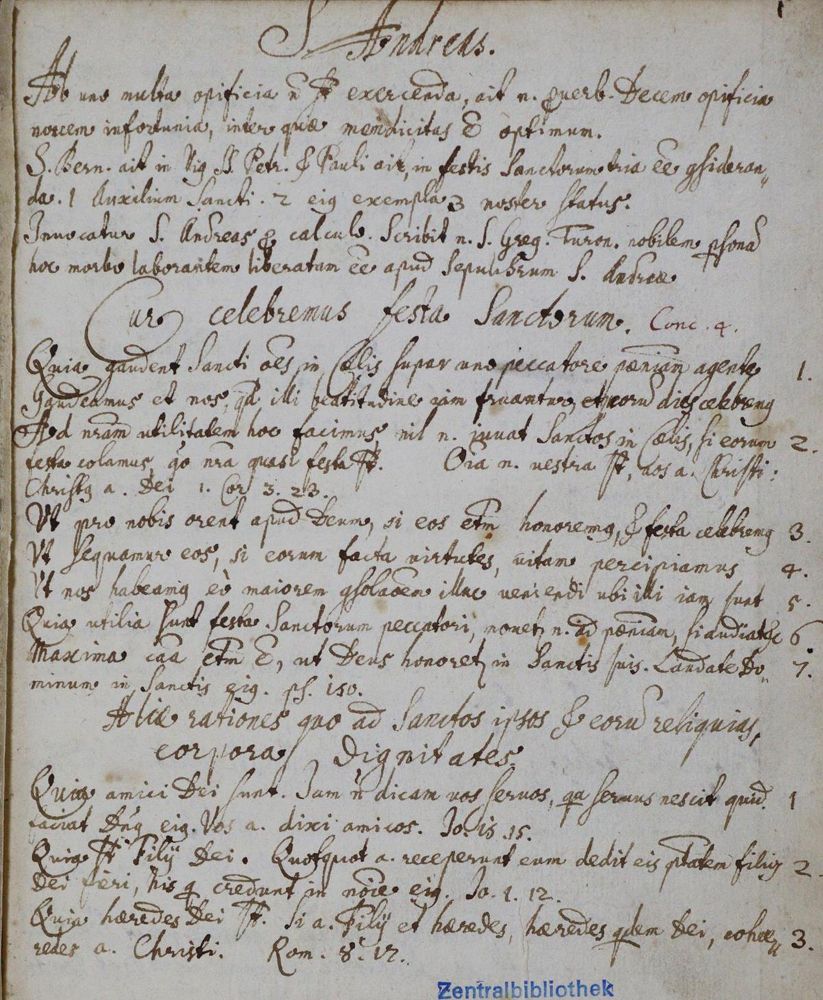 1
S. Andreas.
Ab uno multa opificia ñ st exercenda, ait n. pverb. Decem opificia
novem infortunia, inter quæ mendicitas ē optimum.
S. Bern. ait in Vig SS. Petr. & Pauli ait, in festis Sanctorum tria ēe gsideran„
da. 1 Auxilium Sancti. 2 eig exempla 3 noster status.
Invocatur S. Andreas p calculo. Scribit n. S. Greg. Turon. nobilem psonā
hoc morbo laborantem liberatam ēe apud Sepulchrum S. Andreæ
Cur celebremus festa Sanctorum. Conc. 4.
Quia gaudent Sancti oēs in Cœlis super uno peccatore pœniam agente 1.
Gaudeamus et nos, qd illi beatitudine iam fruantur, et eorū dies celebremg
Ad nram utilitatem hoc facimus, nil n. iuvat Sanctos in Cœlis, si eorum 2.
festa colamus, go nra quasi festa st. Oīa n. vestra st, vos a. Christi:
Christg a. Dei 1. Cor 3. 23.
Ut pro nobis orent apud Deum, si eos etm honoremg, & festa celebremg 3.
Ut sequamur eos, si eorum facta virtutes, vitam percipiamus 4.
Ut nos habeamg eò maiorem gsolaōem illuc veniendi ubi illi iam sunt 5.
Quia utilia sunt festa Sanctorum peccatori, movet n. ad pœniam, si audiat 6
Maxima cāa etm ē, ut Deus honoret in Sanctis suis. Laudate Do„ 7.
minum in Sanctis eig. ps. 150.
Aliæ rationes quo ad Sanctos ipsos & eorū reliquias,
corpora dignitates.
Quia amici Dei sunt. Iam ñ dicam vos servos, qa servus nescit quid 1
faciat Dng eig. Vos a. dixi amicos. Io. 15. 15.
Quia st Filij Dei. Quotquot a. receperunt eum dedit eis ptatem filios 2.
Dei fieri, his q credunt in noīe eig. Io. 1. 12.
Quia hæredes Dei st. Si a. Filij et hæredes, hæredes qdem Dei, cohæ„ 3.
redes a. Christi. Rom. 8. 17.
Zentralbibliothek